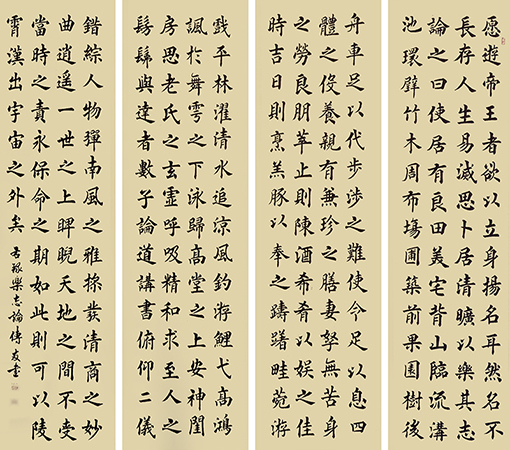 愿遊帝王者欲以立身揚名耳然名不
長存人生易滅思卜居清曠以樂其志
論之曰使居有良田美宅背山臨流溝
池環壁竹木周布塲圃築前果園樹後
舟車足以代步涉之難使令足以息四
體之役養親有兼珍之膳妻孥無苦身
之勞良朋萃止則陳酒希肴以娛之佳
時吉日則烹羔豚以奉之躊躇畦菀游
戲平林濯清水追涼風釣游鯉弋高鴻
諷於舞雩之下泳歸高堂之上安神閨
房思老氏之玄靈呼吸精和求至人之
髣髴與達者數子論道講書俯仰二儀
錯綜人物彈南風之雅操發清商之妙
曲逍遥一世之上睥睨天地之間不受
當時之責永保命之期如此則可以陵
霄漢出宇宙之外矣 樂志論傅友書